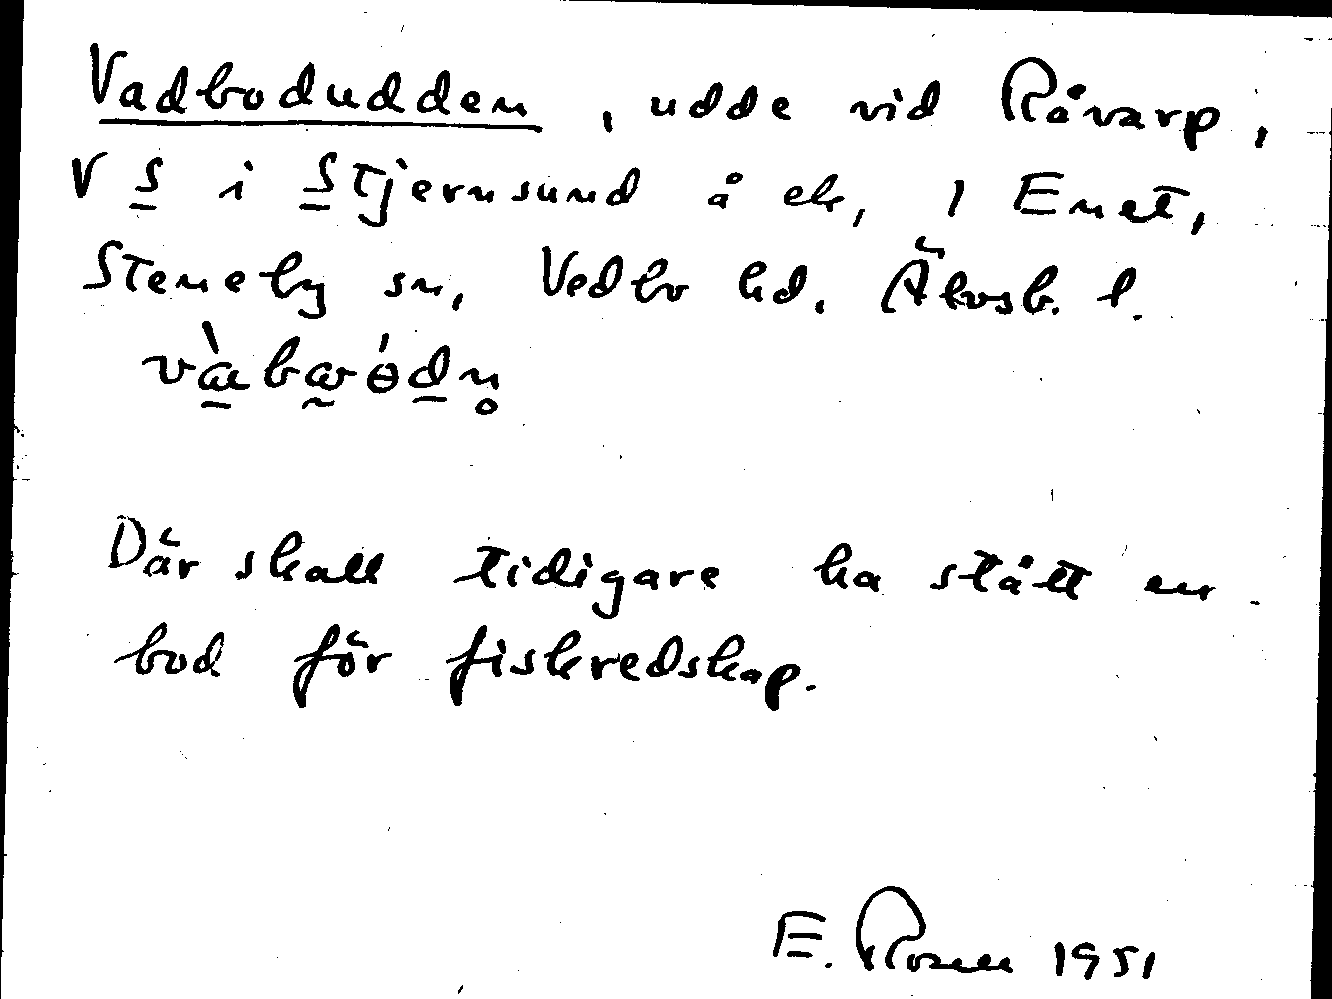 Vadbodudden, udde vid Råvarp,
V S i Stjernsund å ek, 1 Enet,
Steneby sn, Vedbo hd. Älvsb. l.
Där skall tidigare ha stått en
bod för fiskredskap.
E. Rosen 1951